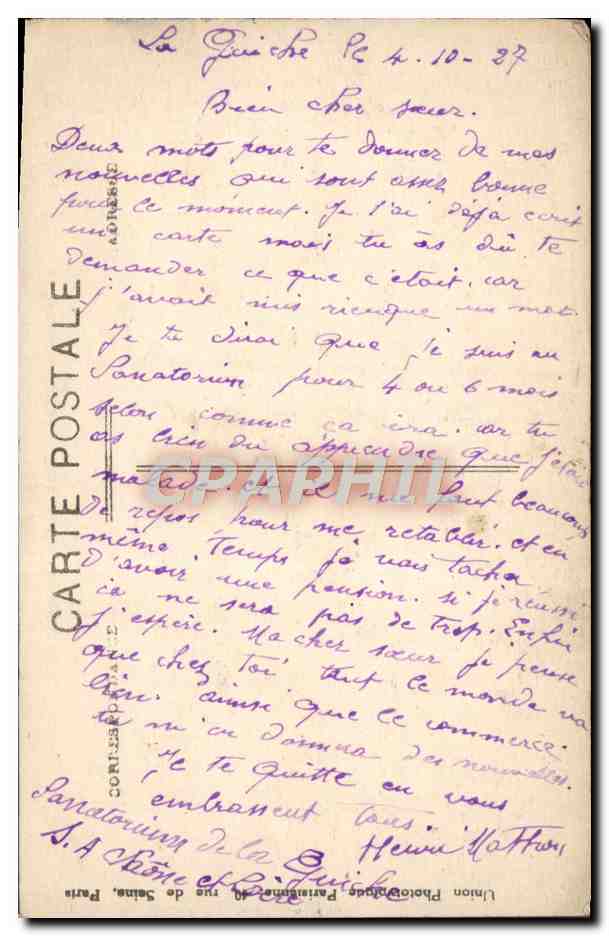 La Guiche le 4-10-27
Bien cher sœur.
Deux mots pour te donner de mes
nouvelles qui sont assez bonne
pour le moment. Je t'ai déjà ecrit
un carte mais tu as dû te
demander ce que c'était. car
j'avait mis rienque un mot
Je te dirai que je suis au
Sanatorium pour 4 ou 6 mois
selon comme ça ira. car tu
as bien du apprendre que j'étai
malade. et il me faut beaucoup
de repos pour me retablir. et en
même temps je vais tacher
d'avoir une pension. si je réussi
ça ne sera pas de trop. Enfin
j'espère. Ma cher sœur je pense
que chez toi tout le monde va
bien. ainsi que le commerce.
tu m'en donnera des nouvelles.
Je te quitte en vous
embrassent tous.
Henri
Sanatorium de la Guiche
S. A Saône et Loire
CARTE POSTALE
CORRESPONDANCE
ADRESSE
CPAPHIL
Union Photographique Parisienne, rue de Seine, Paris